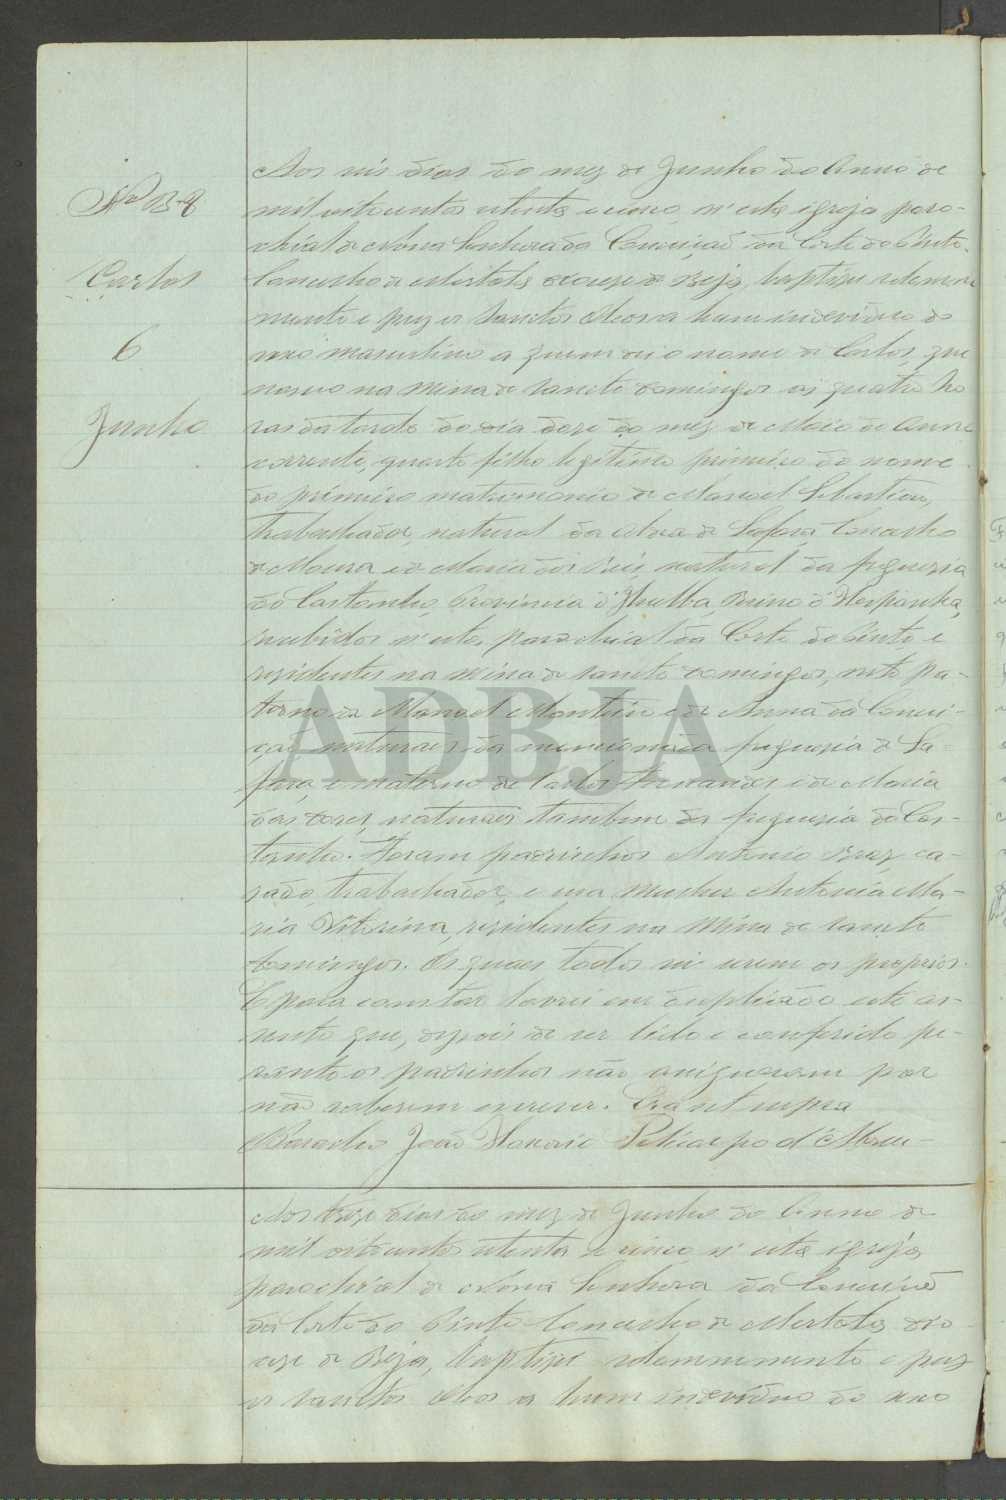 Carlos
6
Junho
Aos seis dias do mez de Junho do Anno de
mil oitocentos oitenta e cinco, n'esta igreja paro-
chial de Nossa Senhora da Conceição da Corte do Pinto,
Concelho de Mertola, diocese de Beja, baptizei solemne
mente e puz os Sanctos Oleos a hum individuo do
sexo masculino a quem dei o nome de Carlos, que
nasceu na Mina de Sancto Domingos ás quatro ho
ras da tarde do dia doze do mez de Maio do Anno
corrente, quarto filho legitimo primeiro do nome
do primeiro matrimonio de Manoel Sebastião,
trabalhador, natural da Aldeia de Safara, Concelho
de Moura e de Maria dos Reis, natural da freguezia
do Castanho, Provincia d'Huelba, Reino d'Hespanha,
recebidos n'esta parochial da Corte do Pinto e
residentes na Mina de Sancto Domingos, neto pa-
terno de Manoel Monteiro e de Anna da Concei-
ção, naturaes da mencionada freguezia de Sa-
fara, e materno de Carlos Fernandes e de Maria
das Dores, naturaes tambem da freguezia do Cas-
tanho. Foram padrinhos Antonio, ca-
sado, trabalhador, e sua mulher Antonia Ma-
ria Vitorina, residentes na Mina de Sancto
Domingos. Os quaes todos sei serem os proprios.
E para constar lavrei em duplicado este as-
sento que, depois de ser lido e conferido pe-
rante os padrinhos não assignaram por
não saberem escrever. Era ut supra
O Parocho João Honorio Policarpo d'Abreu
Aos treze dias do mez de Junho do Anno de
mil oitocentos oitenta e cinco, n'esta igreja
parochial de Nossa Senhora da Conceição
da Corte do Pinto Concelho de Mertola, dio-
cese de Beja, baptizei solemnemente e puz
os Sanctos Oleos a hum individuo do sexo
ADBJA